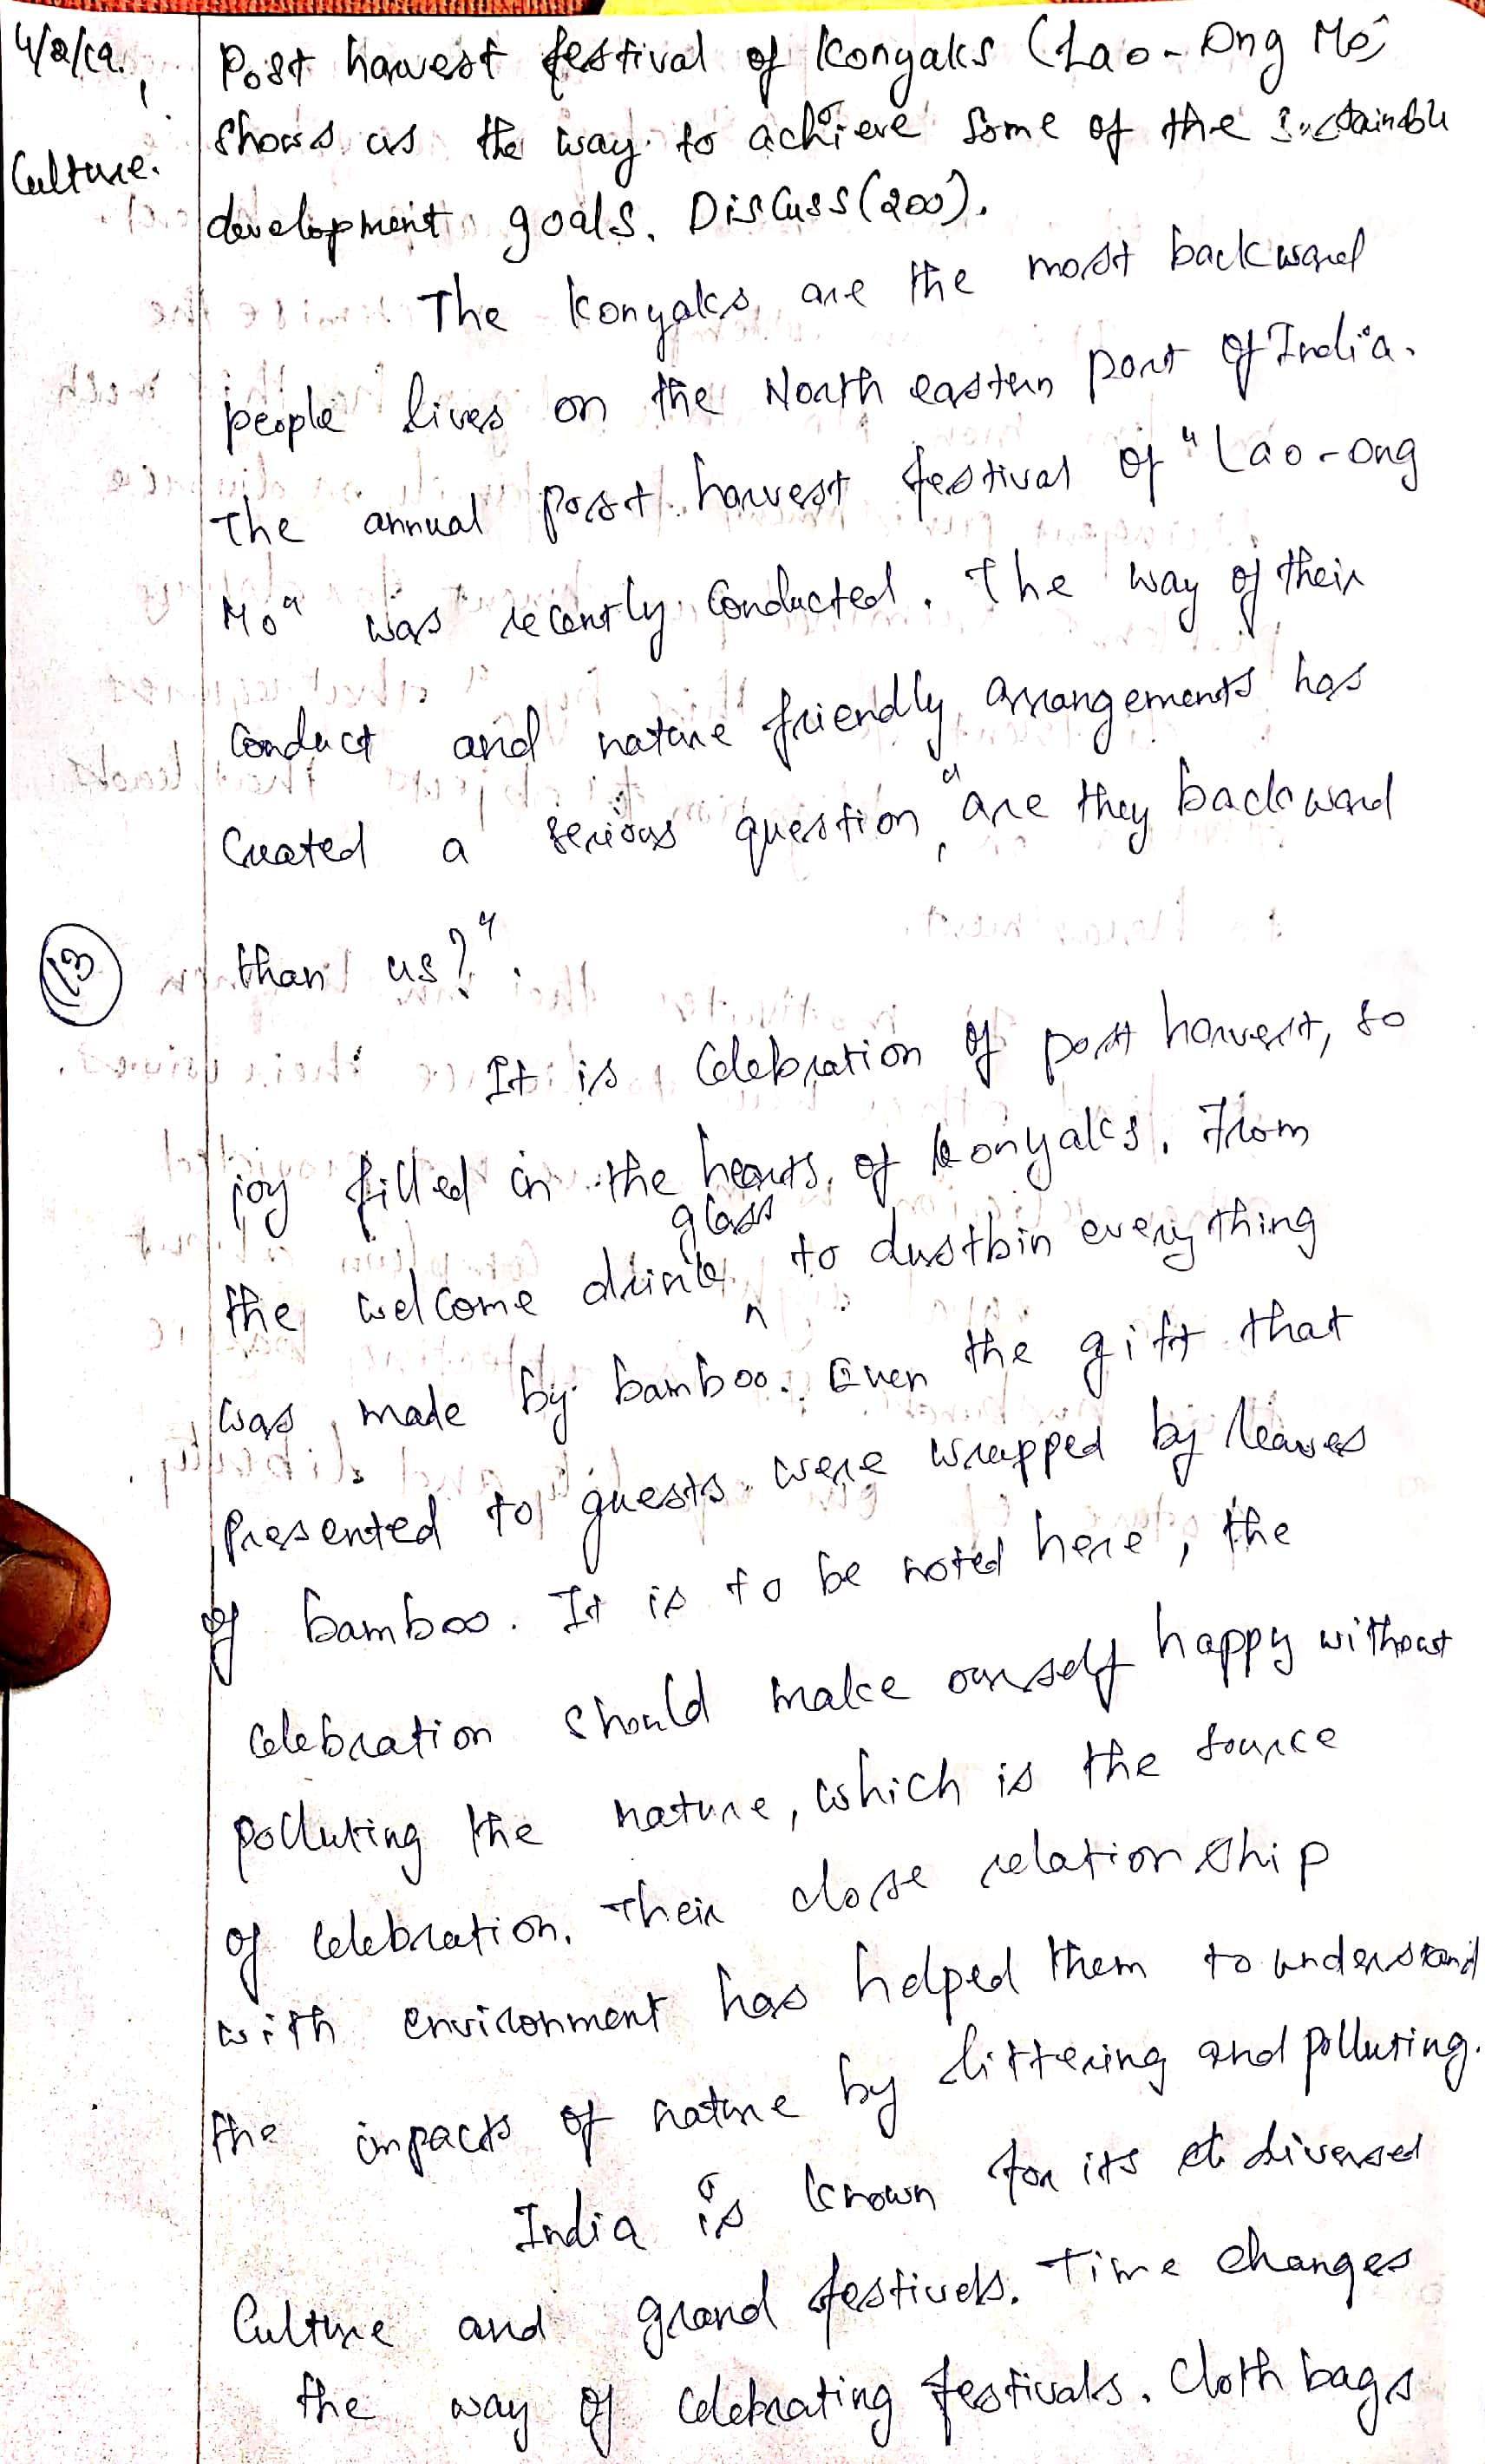 4/2/19.
Culture.
Post harvest festival of Konyaks (Lao-Ong Mo)
shows us the way to achieve some of the sustainable
development goals. Discuss (200).
The Konyaks are the most backward
people lives on the North eastern part of India.
The annual post harvest festival of "Lao-ong
Mo" was recently conducted. The way of their
conduct and nature friendly arrangements has
created a serious question, "are they backward
(13)
than us?".
It is celebration of post harvest, so
joy filled in the hearts of konyaks. From
the welcome drink glass to dustbin every thing
was made by bamboo. Even the gift that
presented to guests were wrapped by leaves
of bamboo. It is to be noted here, the
celebration should make ourself happy without
polluting the nature, which is the source
of celebration. Their close relationship
with environment has helped them to understand
the impacts of nature by littering and polluting.
India is known for its diversed
Culture and grand festivels. Time changes
the way of celebrating festivals. Cloth bags